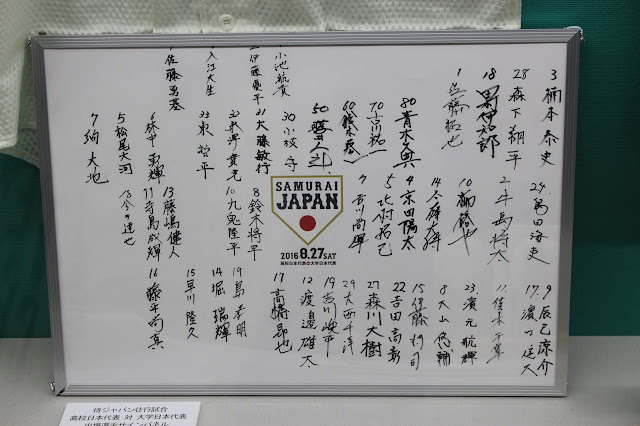 3 楠本泰史
28 森下翔平
18
1 佐藤拓也
80 青木
70
60
50
30 小坂
21 大藤敏行
小池航貴
伊藤康平
入江大生
佐藤勇基
24 島田海吏
2 牛島将太
10 柳裕也
14
4 京田陽太
5 北村拓己
7 吉川尚輝
8 鈴木将平
10 九鬼隆平
6 林中勇輝
5 松尾大河
7 納大地
SAMURAI
JAPAN
2016 8.27 SAT
高校日本代表 大学日本代表
13 藤嶋健人
11 寺島成輝
18 今井達也
9 辰己涼介
17 濵口遥大
11
23 濵元航輝
8 大山悠輔
15 伊藤将司
22 吉田高彰
27 森川大樹
29 大西千洋
19 吉川峻平
12 渡邊雄太
17 高橋昂也
19 島孝明
14 堀瑞輝
15 早川隆久
16 藤平尚真
侍ジャパン壮行試合
高校日本代表 対 大学日本代表
出場選手サインパネル